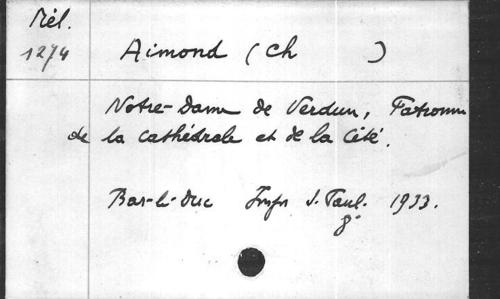 Mél.
1274
Aimond (Ch )
Notre-Dame de Verdun, Patronne
de la cathédrale et de la Cité.
Bar-le-Duc Impr S. Paul. 1933.
8°